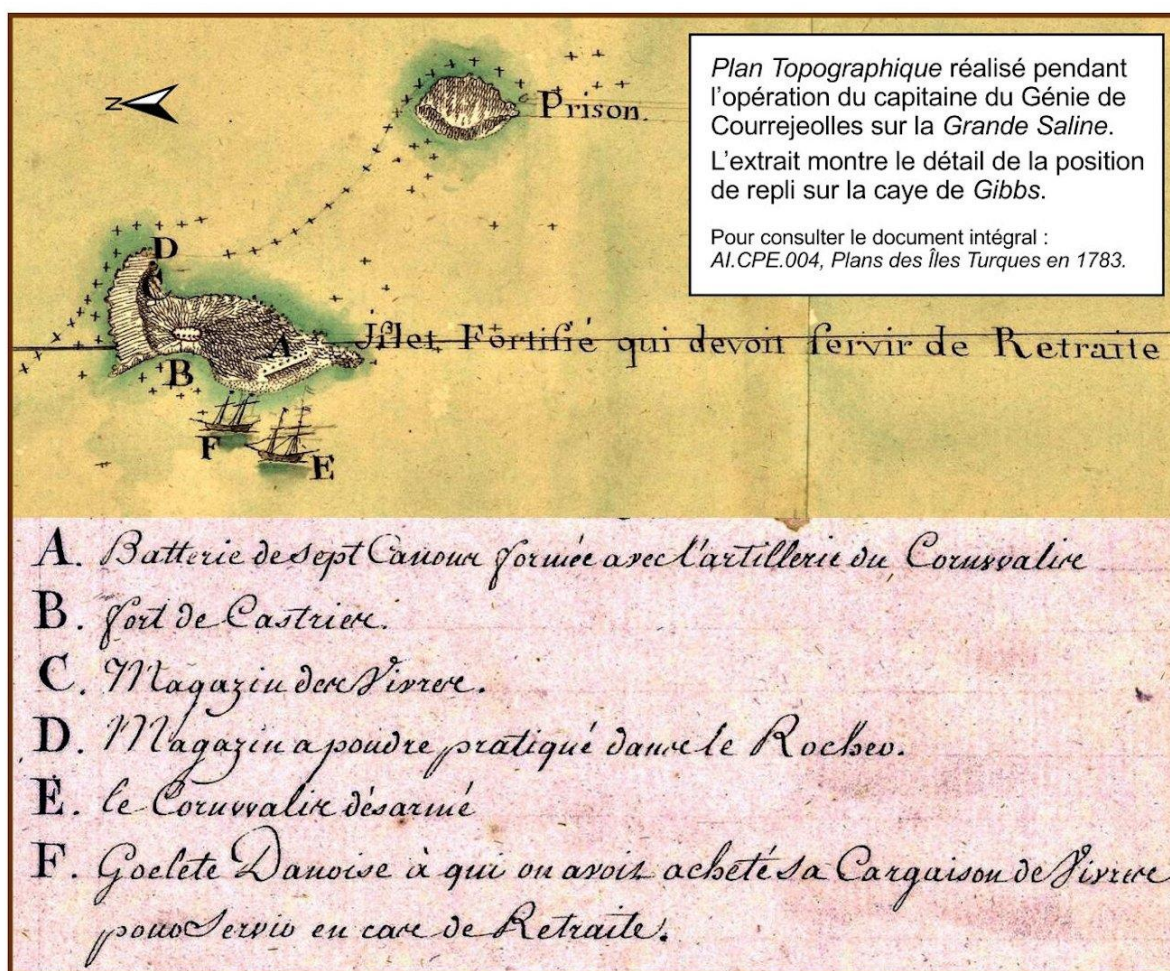 Plan Topographique réalisé pendant
l'opération du capitaine du Génie de
Courrejeolles sur la Grande Saline.
L'extrait montre le détail de la position
de repli sur la caye de Gibbs.
Pour consulter le document intégral :
AI.CPE.004, Plans des Îles Turques en 1783.
N
Prison.
D
C
Islet Fortifié qui devoit servir de Retraite
A
B
F
E
A. Batterie de sept Canons formée avec l'artillerie du Cornwalis
B. fort de Castries.
C. Magazin des Vivres.
D. Magazin a poudre pratiqué dans le Rocher.
E. le Cornwalis désarmé
F. Goelete Danoise à qui on avoit acheté sa Cargaison de Vivres
pour Servir en cas de Retraite.